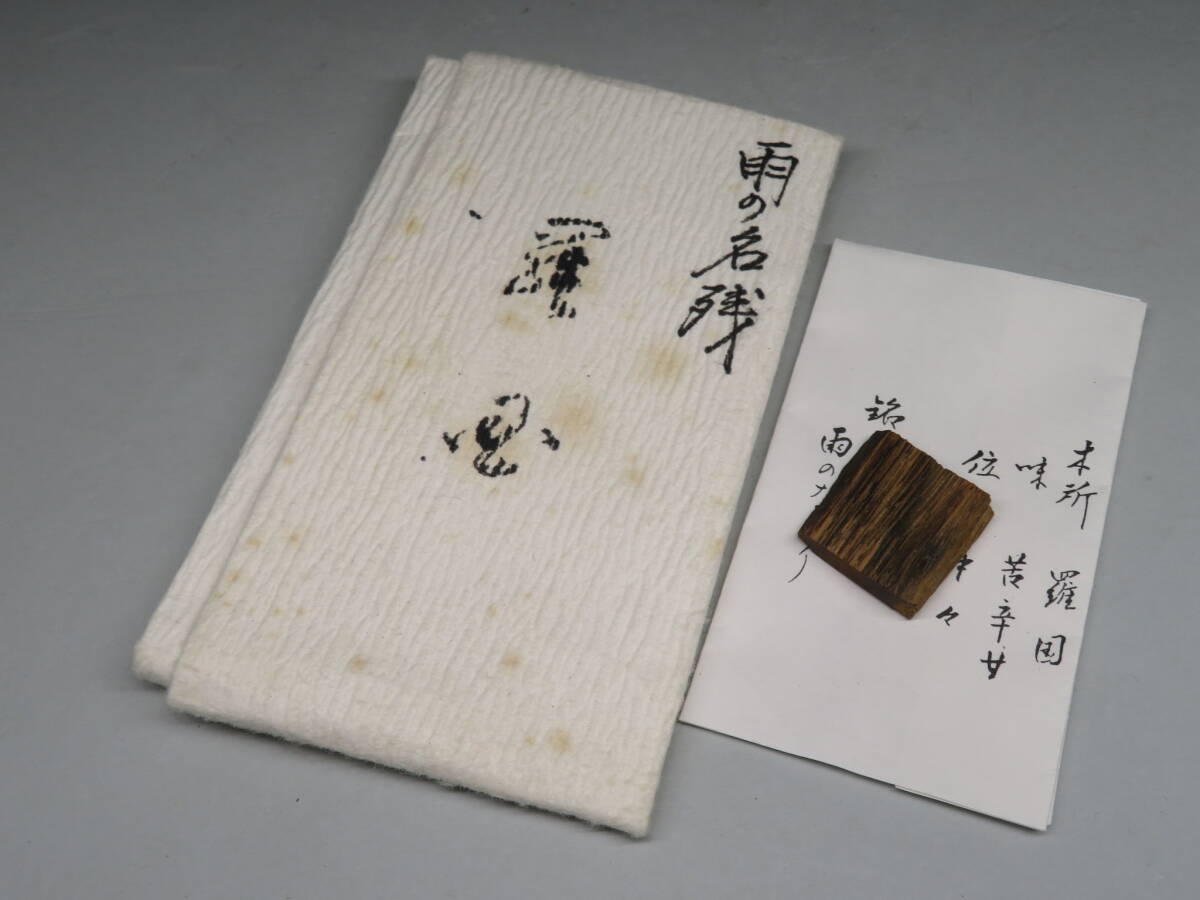 雨の名残
羅
国
木所 羅国
味 苦辛甘
位 中々
銘
雨のな